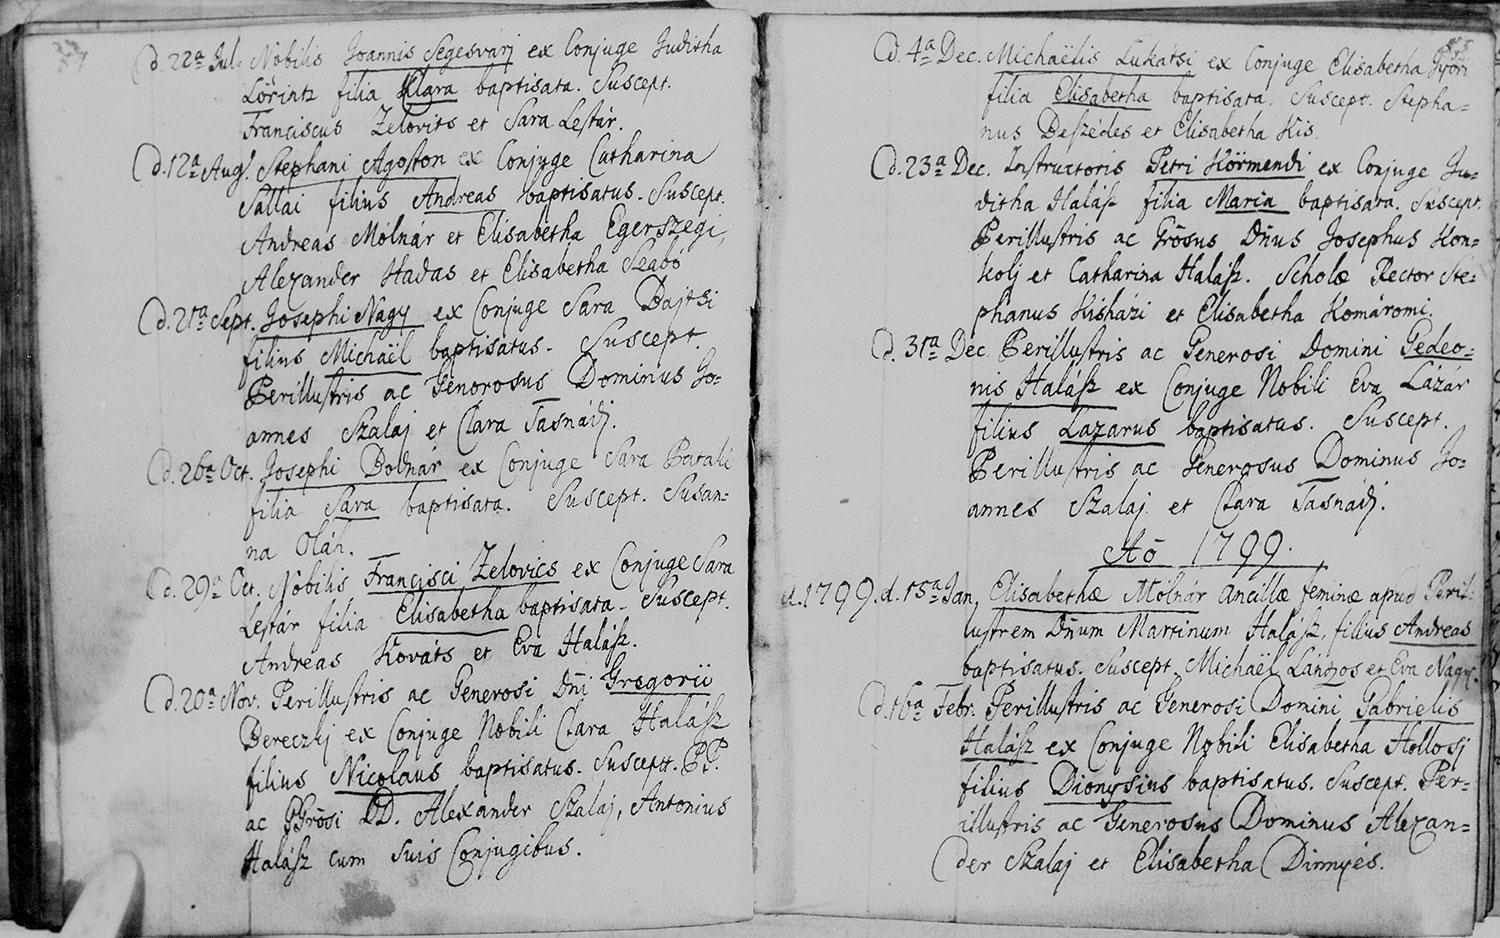 d. 22a Jul. Nobilis Joannis Segesvárj ex Conjuge Juditha
Lörintz filia Klara baptisata. Suscept.
Franciscus Zelovits et Sara Lestár.
d. 12a Aug. Stephani Agoston ex Conjuge Catharina
Sallai filius Andreas baptisatus. Suscept.
Andreas Mólnár et Elisabetha Egerszegi,
Alexander Hadas et Elisabetha Szabó
d. 21a Sept. Josephi Nagy ex Conjuge Sara Dajtsi
filius Michaël baptisatus. Suscept.
Perillustris ac Generosus Dominus Jo=
annes Szalaj et Clara Tasnádj.
d. 26a Oct. Josephi Bodnár ex Conjuge Sara Patali
filia Sara baptisata. Suscept. Susan=
na Oláh.
d. 29a Oct. Nobilis Francisci Zelovics ex Conjuge Sara
Lestár filia Elisabetha baptisata. Suscept.
Andreas Kováts et Eva Halász.
d. 20a Nov. Perillustris ac Generosi Dni Gregorii
Bereczkj ex Conjuge Nobili Clara Halász
filius Nicolaus baptisatus. Suscept. PP.
ac GGrosi DD. Alexander Szalaj, Antonius
Halász cum suis Conjugibus.
d. 4a Dec. Michaëlis Lukatsi ex Conjuge Elisabetha Györi
filia Elisabetha baptisata. Suscept. Stepha=
nus Deszédes et Elisabetha Kis.
d. 23a Dec. Instructoris Petri Körmendi ex Conjuge Ju=
ditha Halász filia Maria baptisata. Suscept.
Perillustris ac Grōsus Dn̄us Josephus Kon=
kolj et Catharina Halász. Scholæ Rector Ste=
phanus Kisházi et Elisabetha Komáromi.
d. 31a Dec. Perillustris ac Generosi Domini Gedeo=
nis Halász ex Conjuge Nobili Eva Lázár
filius Lazarus baptisatus. Suscept.
Perillustris ac Generosus Dominus Jo=
annes Szalaj et Clara Tasnádj.
Aō 1799.
1799. d. 15a Jan. Elisabethæ Mólnár ancillæ feminæ apud Peril=
lustrem Dn̄um Martinum Halász, filius Andreas
baptisatus. Suscept. Michaël Lántzos et Eva Nagy.
d. 16a Febr. Perillustris ac Generosi Domini Gabrielis
Halász ex Conjuge Nobili Elisabetha Hollosj
filius Dionysius baptisatus. Suscept. Per=
illustris ac Generosus Dominus Alexan=
der Szalaj et Elisabetha Dinnyés.